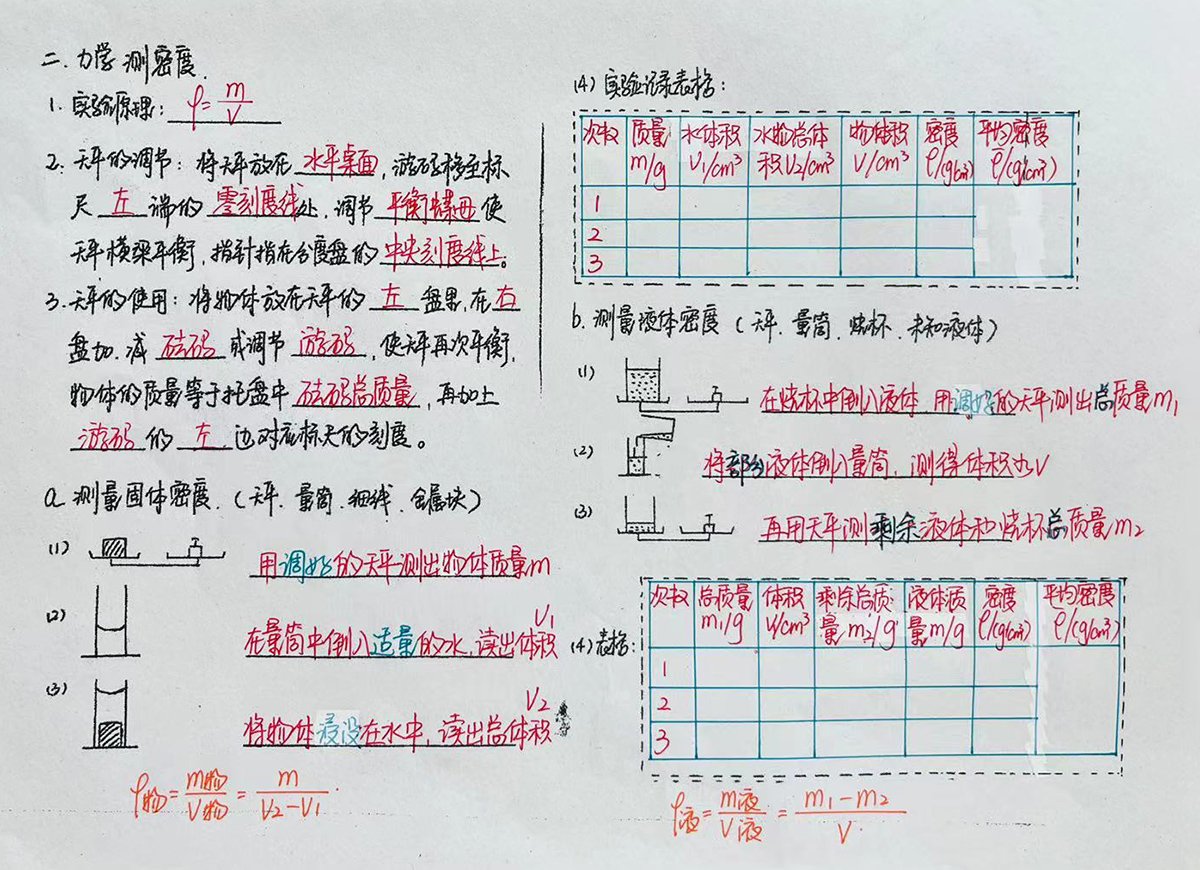 二. 力学 测密度.
1. 实验原理: ρ=m/V
2. 天平的调节: 将天平放在 水平桌面, 游码移至标
尺 左 端的 零刻度线处, 调节 平衡螺母 使
天平横梁平衡, 指针指在分度盘的 中央刻度线上。
3. 天平的使用: 将物体放在天平的 左 盘里, 在 右
盘加、减 砝码 或调节 游码, 使天平再次平衡,
物体的质量等于托盘中 砝码总质量, 再加上
游码 的 左 边对应标尺的刻度。
a. 测量固体密度. (天平、量筒、细线、金属块)
(1) 用调好的天平测出物体质量m
(2) 在量筒中倒入适量的水, 读出体积V1
(3) 将物体浸没在水中, 读出总体积V2
ρ物=m物/V物=m/(V2-V1)
(4) 实验记录表格:
次数 质量m/g 水体积V1/cm³ 水物总体积V2/cm³ 物体积V/cm³ 密度ρ/(g/cm³) 平均密度ρ/(g/cm³)
1
2
3
b. 测量液体密度 (天平、量筒、烧杯、未知液体)
(1) 在烧杯中倒入液体 用调好的天平测出总质量m1
(2) 将部分液体倒入量筒, 测得体积为V
(3) 再用天平测剩余液体和烧杯总质量m2
(4) 表格:
次数 总质量m1/g 体积V/cm³ 剩余总质量m2/g 液体质量m/g 密度ρ/(g/cm³) 平均密度ρ/(g/cm³)
1
2
3
ρ液=m液/V液=(m1-m2)/V